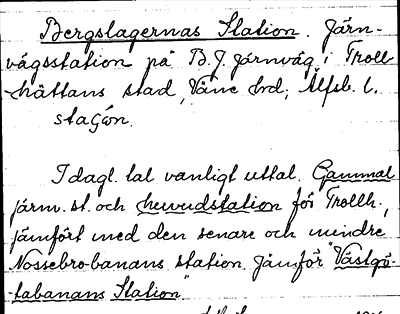 Bergslagernas Station. Järn-
vägsstation på B.J. järnväg i Troll-
hättans stad, Väne hrd; Älfsb. l.
staƷón.
I dagl. tal vanligt uttal. Gammal
järnv. st. och huvudstation för Trollh.,
jämfört med den senare och mindre
Nossebro-banans station. Jämför "Västgö-
tabanans Station"